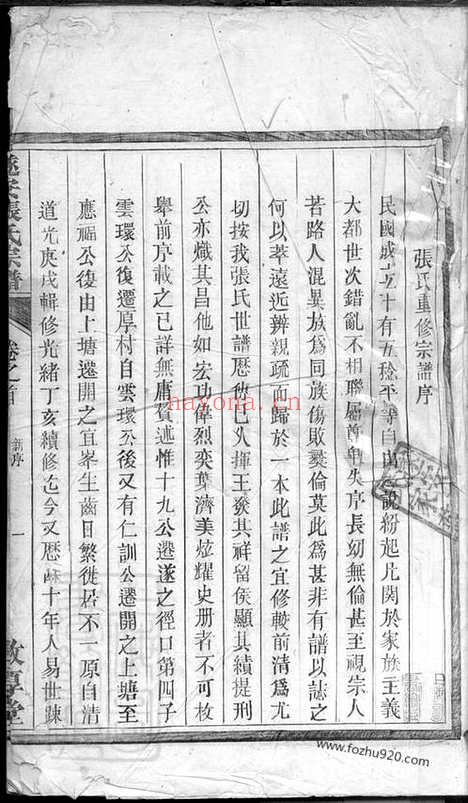 張氏重修宗譜序
民國成立十有五稔平等自由之說紛起凡關於家族主義
大都世次錯亂不相聯屬尊卑失序長幼無倫甚至視宗人
若路人混異族為同族傷敗彜倫莫此為甚非有譜以誌之
何以萃遠近辨親疏而歸於一本此譜之宜修較前清為尤
切按我張氏世譜歷
揮王發其祥留侯顯其績提刑
公亦熾其昌他如宏功偉烈奕葉濟美炫耀史册者不可枚
舉前序載之已詳無庸贅述惟十九公遷遂之徑口第四子
雲環公復遷厚村自雲環公後又有仁訓公遷開之上塘至
應福公復由上塘遷開之宜峯生齒日繁徙居不一原自清
道光庚戌輯修光緒丁亥續修迄今又歷
十年人易世踈
張氏宗譜
卷之首
新序
一
敦厚堂
nayona.cn
www.fozhu920.com